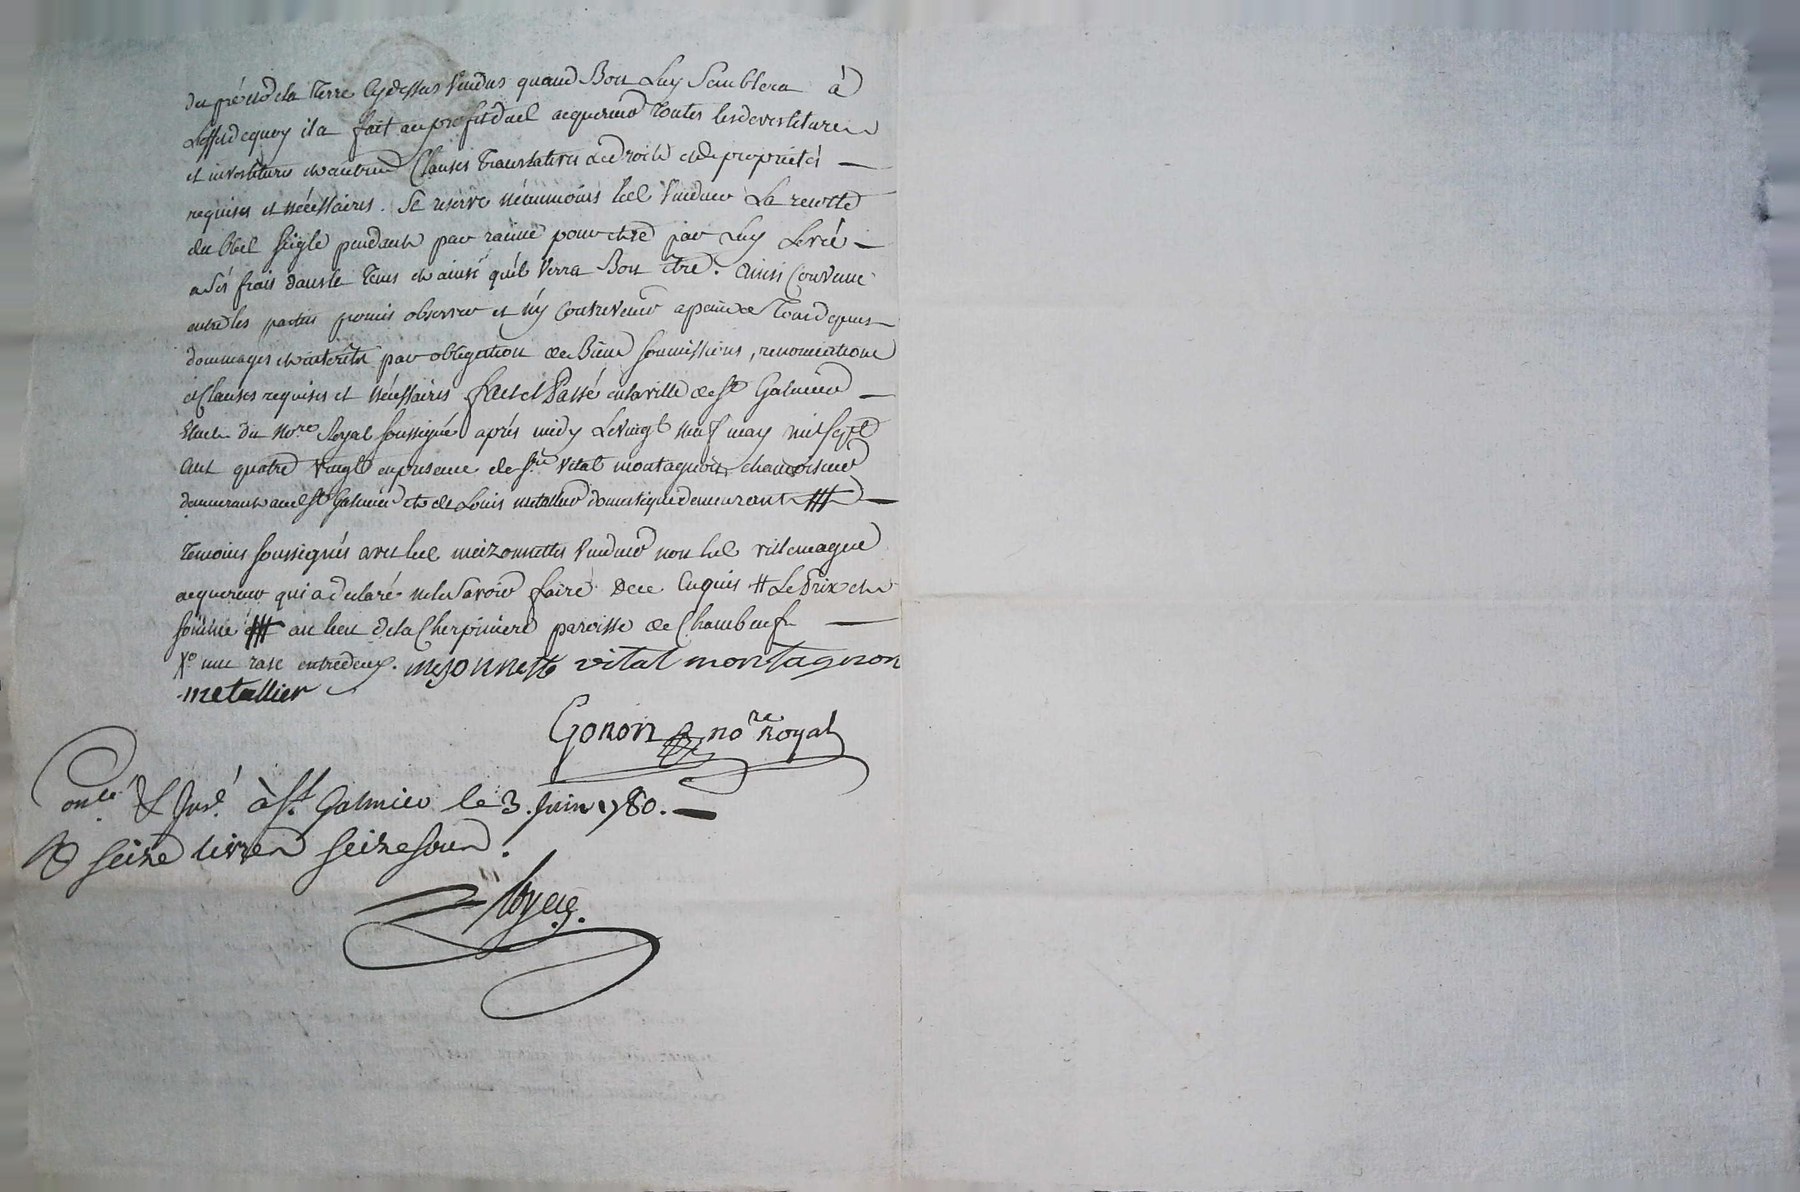 du pré et de la Terre cy dessus vendus quand Bon Luy Semblera à
L'effet de quoy il a fait au profit dud acquereur Toutes les devestitures
et investitures et autres Clauses Translatives de droits et de proprietés
requises et nécéssaires. Se reserve néanmoins led vendeur La recolte
du bled seigle pendante par racine pour etre par Luy Levée
a Sés frais dans le tems et ainsi qu'il verra Bon être. Ainsi Convenu
entre les parties promis observer et n'y Contrevenir a peine de Tous depens
dommages et interets par obligation de Biens soumissions, renonciations
et Clauses requises et nécéssaires fait et Passé en la ville de St Galmier
Etude du Nore Royal soussigné après midy Le vingt neuf may mil sept
cent quatre vingt en presence de Sr Vital montagnon chamoiseur
demeurant aud St Galmier et de Louis metallier domestique demeurant ⧻
Temoins soussignés avec led meizonnettes vendeur non led villemagne
acquereur qui a declaré ne le Savoir faire de ce Enquis # Le Prix et
somme ⧻ au lieu de la Cherpiniere paroisse de Chambeuf
Xo une rase entredeux. mesonnette vital montagnon
metallier
Gonon nore Royal
Conlé & Insé à St Galmier le 3. Juin 1780.
R seize livres seize sous.